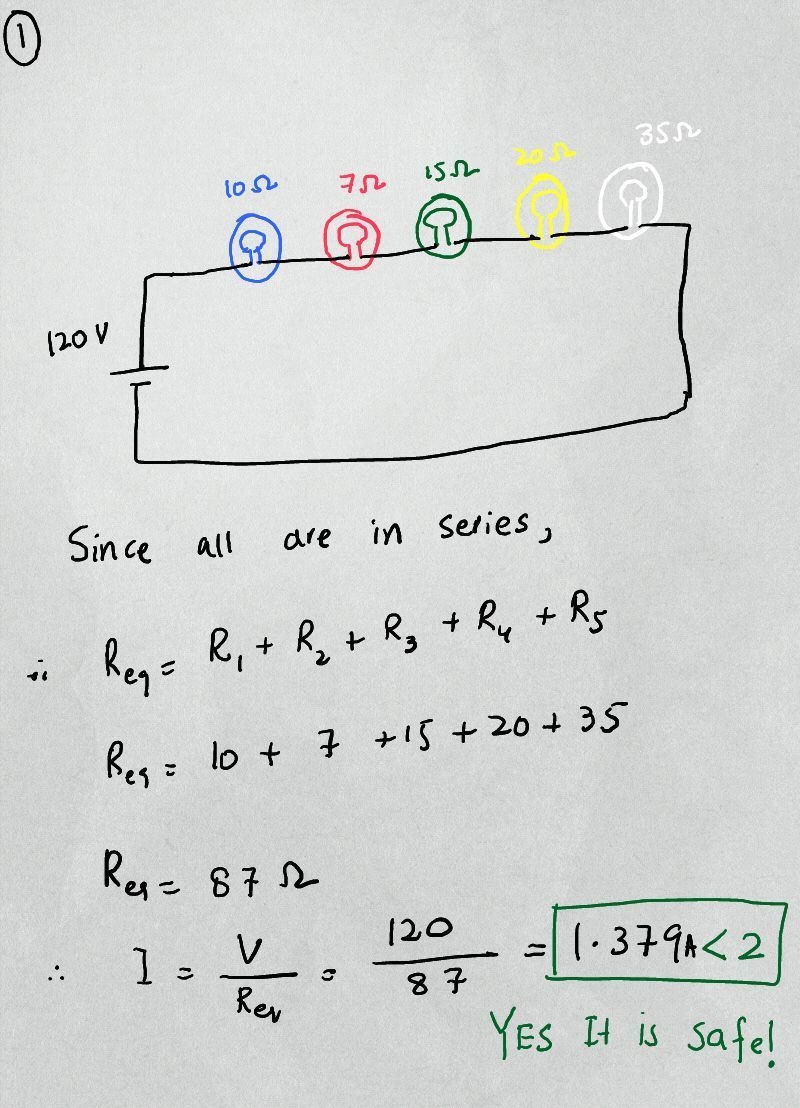 ①
10Ω 7Ω 15Ω 20Ω 35Ω
120 V
Since all are in series,
∴ Req = R₁ + R₂ + R₃ + R₄ + R₅
Req = 10 + 7 + 15 + 20 + 35
Req = 87 Ω
∴ I = V/Req = 120/87 = 1.379A < 2
YES It is safe!